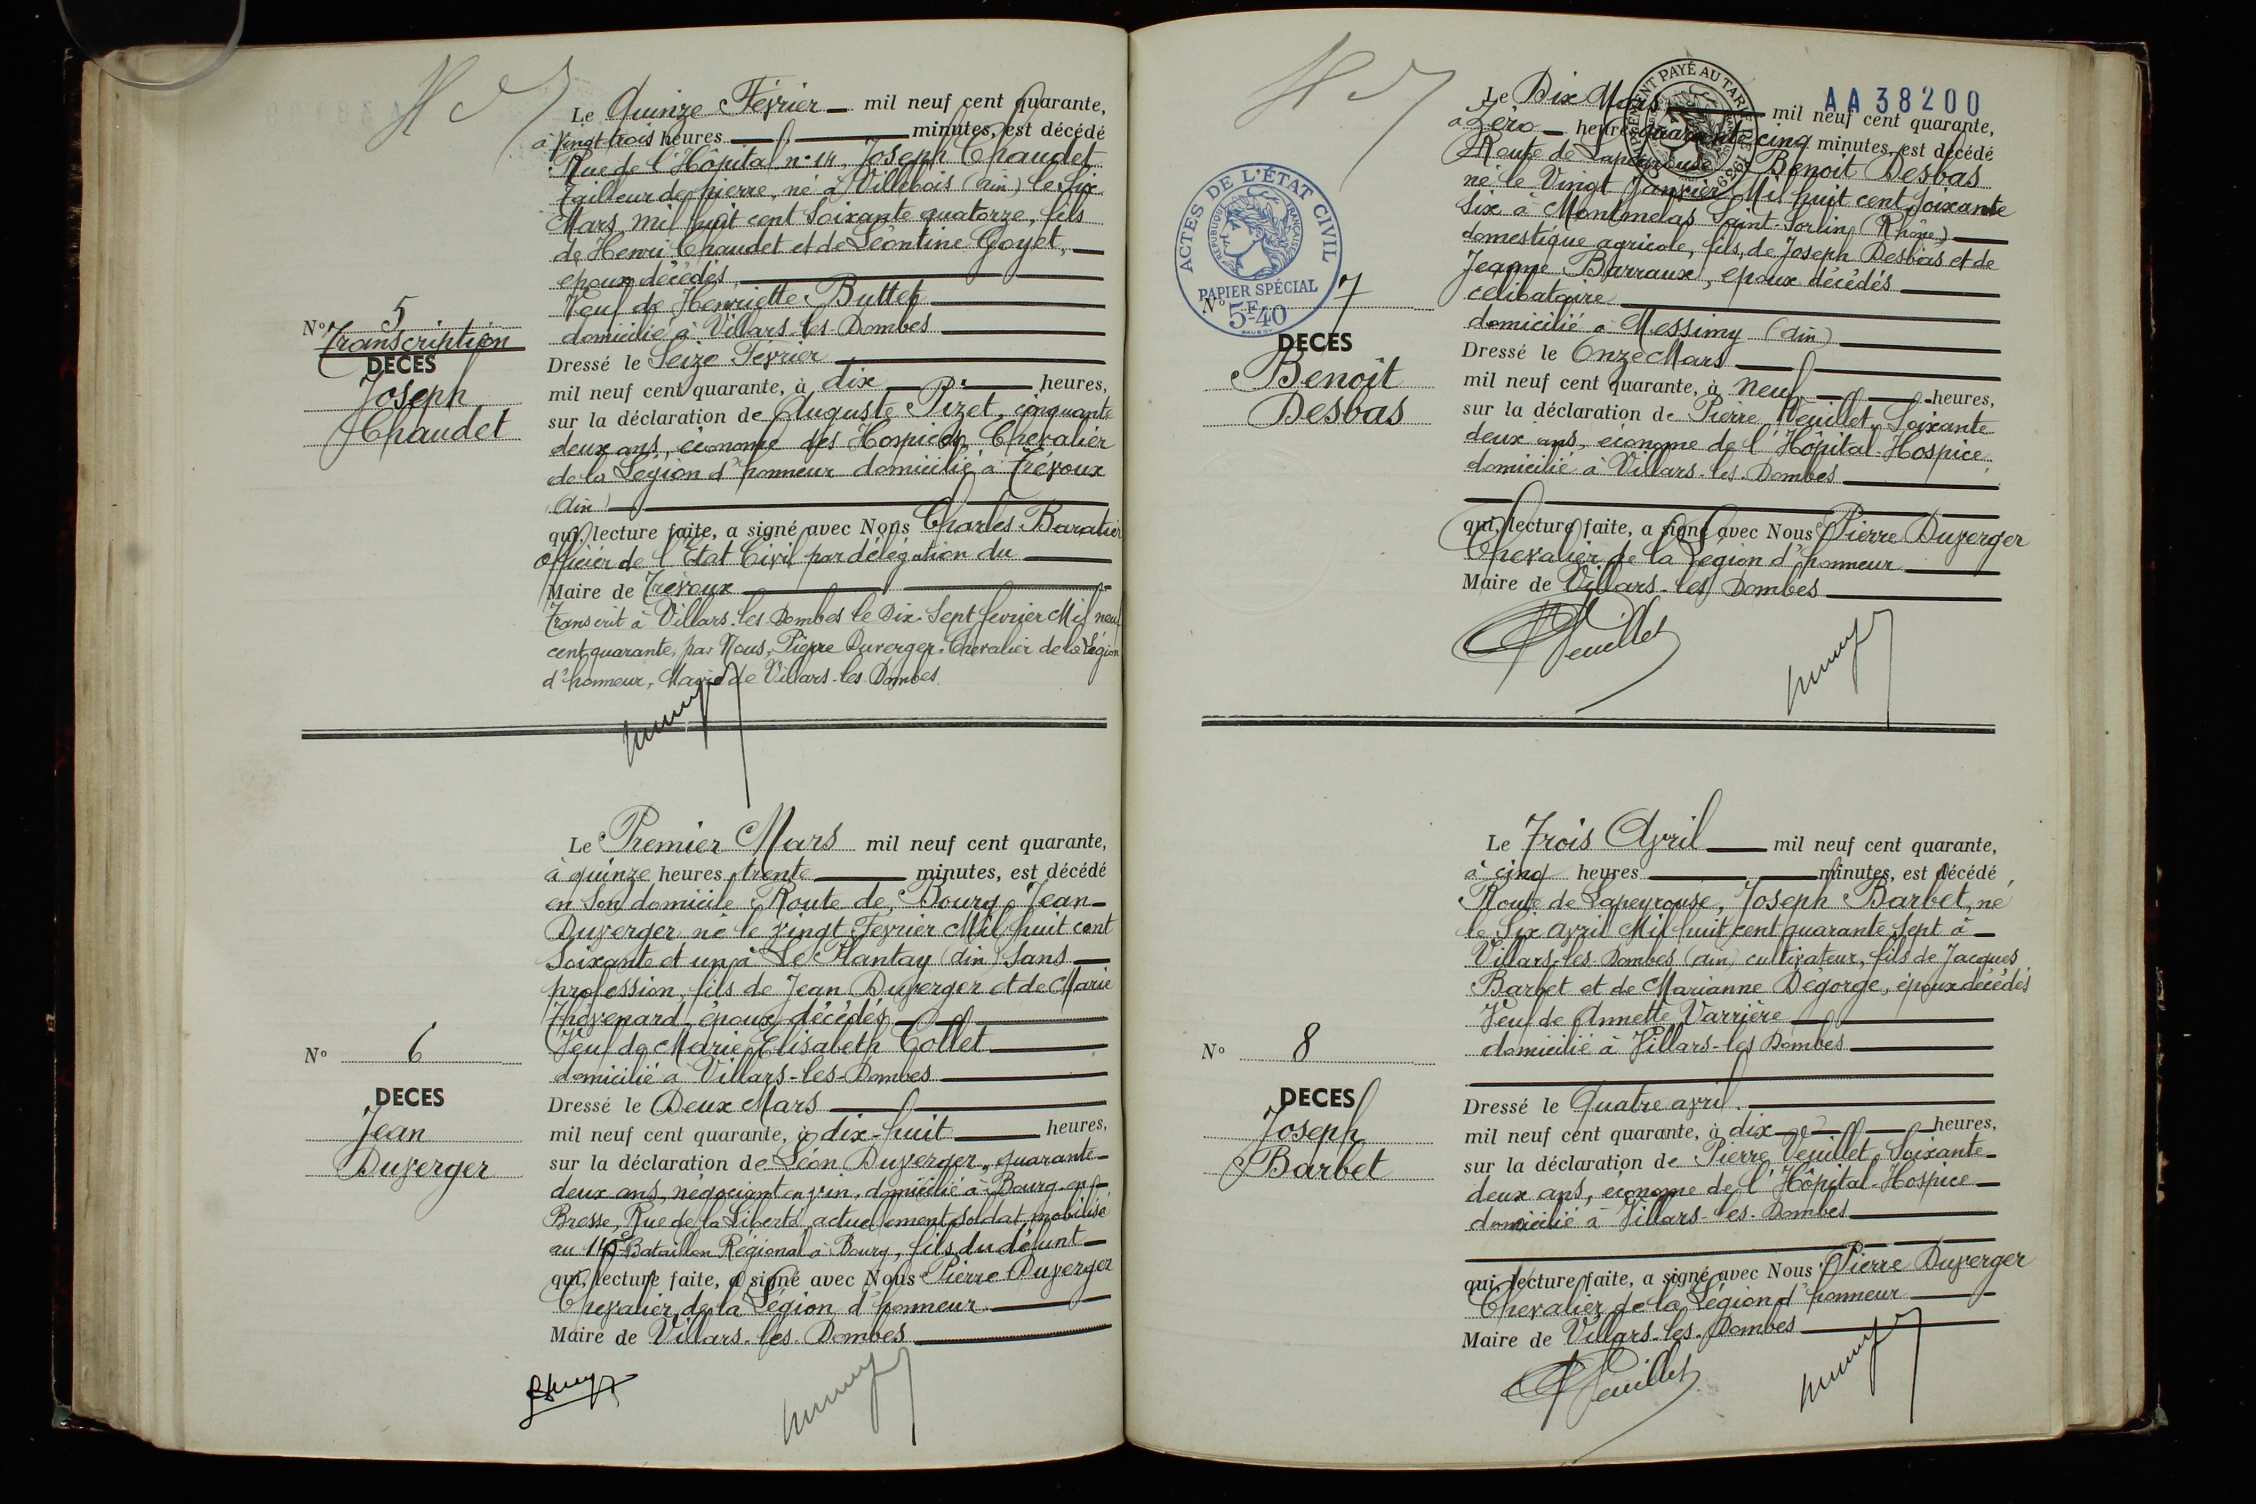 H d
Le Quinze Février mil neuf cent quarante,
à vingt-trois heures minutes, est décédé
Rue de l'Hôpital n° 14, Joseph Chaudet
tailleur de pierre, né à Villebois (Ain) le Six
Mars mil huit cent soixante quatorze, fils
de Henri Chaudet et de Léontine Goyet,
époux décédés
Veuf de Henriette Buttet
domicilié à Villars-les-Dombes
N° 5
Transcription
DECES
Joseph
Chaudet
Dressé le Seize Février
mil neuf cent quarante, à dix heures,
sur la déclaration de Auguste Pizet, cinquante
deux ans, économe des Hospices, Chevalier
de la Légion d'honneur domicilié à Trévoux
(Ain)
qui, lecture faite, a signé avec Nous Charles Baratier
officier de l'Etat Civil par délégation du
Maire de Trévoux
Transcrit à Villars-les-Dombes le Dix-Sept février Mil neuf
cent quarante, par Nous, Pierre Duverger, Chevalier de la Légion
d'honneur, Maire de Villars-les-Dombes
Le Premier Mars mil neuf cent quarante,
à quinze heures trente minutes, est décédé
en son domicile Route de Bourg, Jean
Duverger né le vingt Février Mil huit cent
soixante et un à Le Plantay (Ain) sans
profession, fils de Jean Duverger et de Marie
Thévenard, époux décédés
Veuf de Marie Elisabeth Collet
domicilié à Villars-les-Dombes
N° 6
DECES
Jean
Duverger
Dressé le Deux Mars
mil neuf cent quarante, à dix-huit heures,
sur la déclaration de Léon Duverger, quarante
deux ans, négociant en vin, domicilié à Bourg-en-
Bresse, Rue de la Liberté, actuellement soldat mobilisé
au Bataillon Régional à Bourg, fils du défunt
qui, lecture faite, a signé avec Nous Pierre Duverger
Chevalier de la Légion d'honneur
Maire de Villars-les-Dombes
H d
AA38200
Le Dix Mars mil neuf cent quarante,
à Zéro heure quarante cinq minutes, est décédé
Route de Lapeyrouse, Benoit Desbas
né le Vingt Janvier Mil huit cent soixante
six à Montmelas Saint-Sorlin (Rhône)
domestique agricole, fils de Joseph Desbas et de
Jeanne Barraux, époux décédés
célibataire
domicilié à Messimy (Ain)
ACTES DE L'ÉTAT CIVIL
RÉPUBLIQUE FRANÇAISE
PAPIER SPÉCIAL
5F.40
N° 7
DECES
Benoit
Desbas
Dressé le Onze Mars
mil neuf cent quarante, à neuf heures,
sur la déclaration de Pierre Veuillet, Soixante
deux ans, économe de l'Hôpital-Hospice
domicilié à Villars-les-Dombes
qui, lecture faite, a signé avec Nous Pierre Duverger
Chevalier de la Légion d'honneur
Maire de Villars-les-Dombes
Veuillet
Le Trois Avril mil neuf cent quarante,
à cinq heures minutes, est décédé
Route de Lapeyrouse, Joseph Barbet, né
le Six avril Mil huit cent quarante sept à
Villars-les-Dombes (Ain) cultivateur, fils de Jacques
Barbet et de Marianne Dégorge, époux décédés
Veuf de Annette Varrière
domicilié à Villars-les-Dombes
N° 8
DECES
Joseph
Barbet
Dressé le Quatre avril
mil neuf cent quarante, à dix heures,
sur la déclaration de Pierre Veuillet, Soixante
deux ans, économe de l'Hôpital-Hospice
domicilié à Villars-les-Dombes
qui, lecture faite, a signé avec Nous Pierre Duverger
Chevalier de la Légion d'honneur
Maire de Villars-les-Dombes
Veuillet